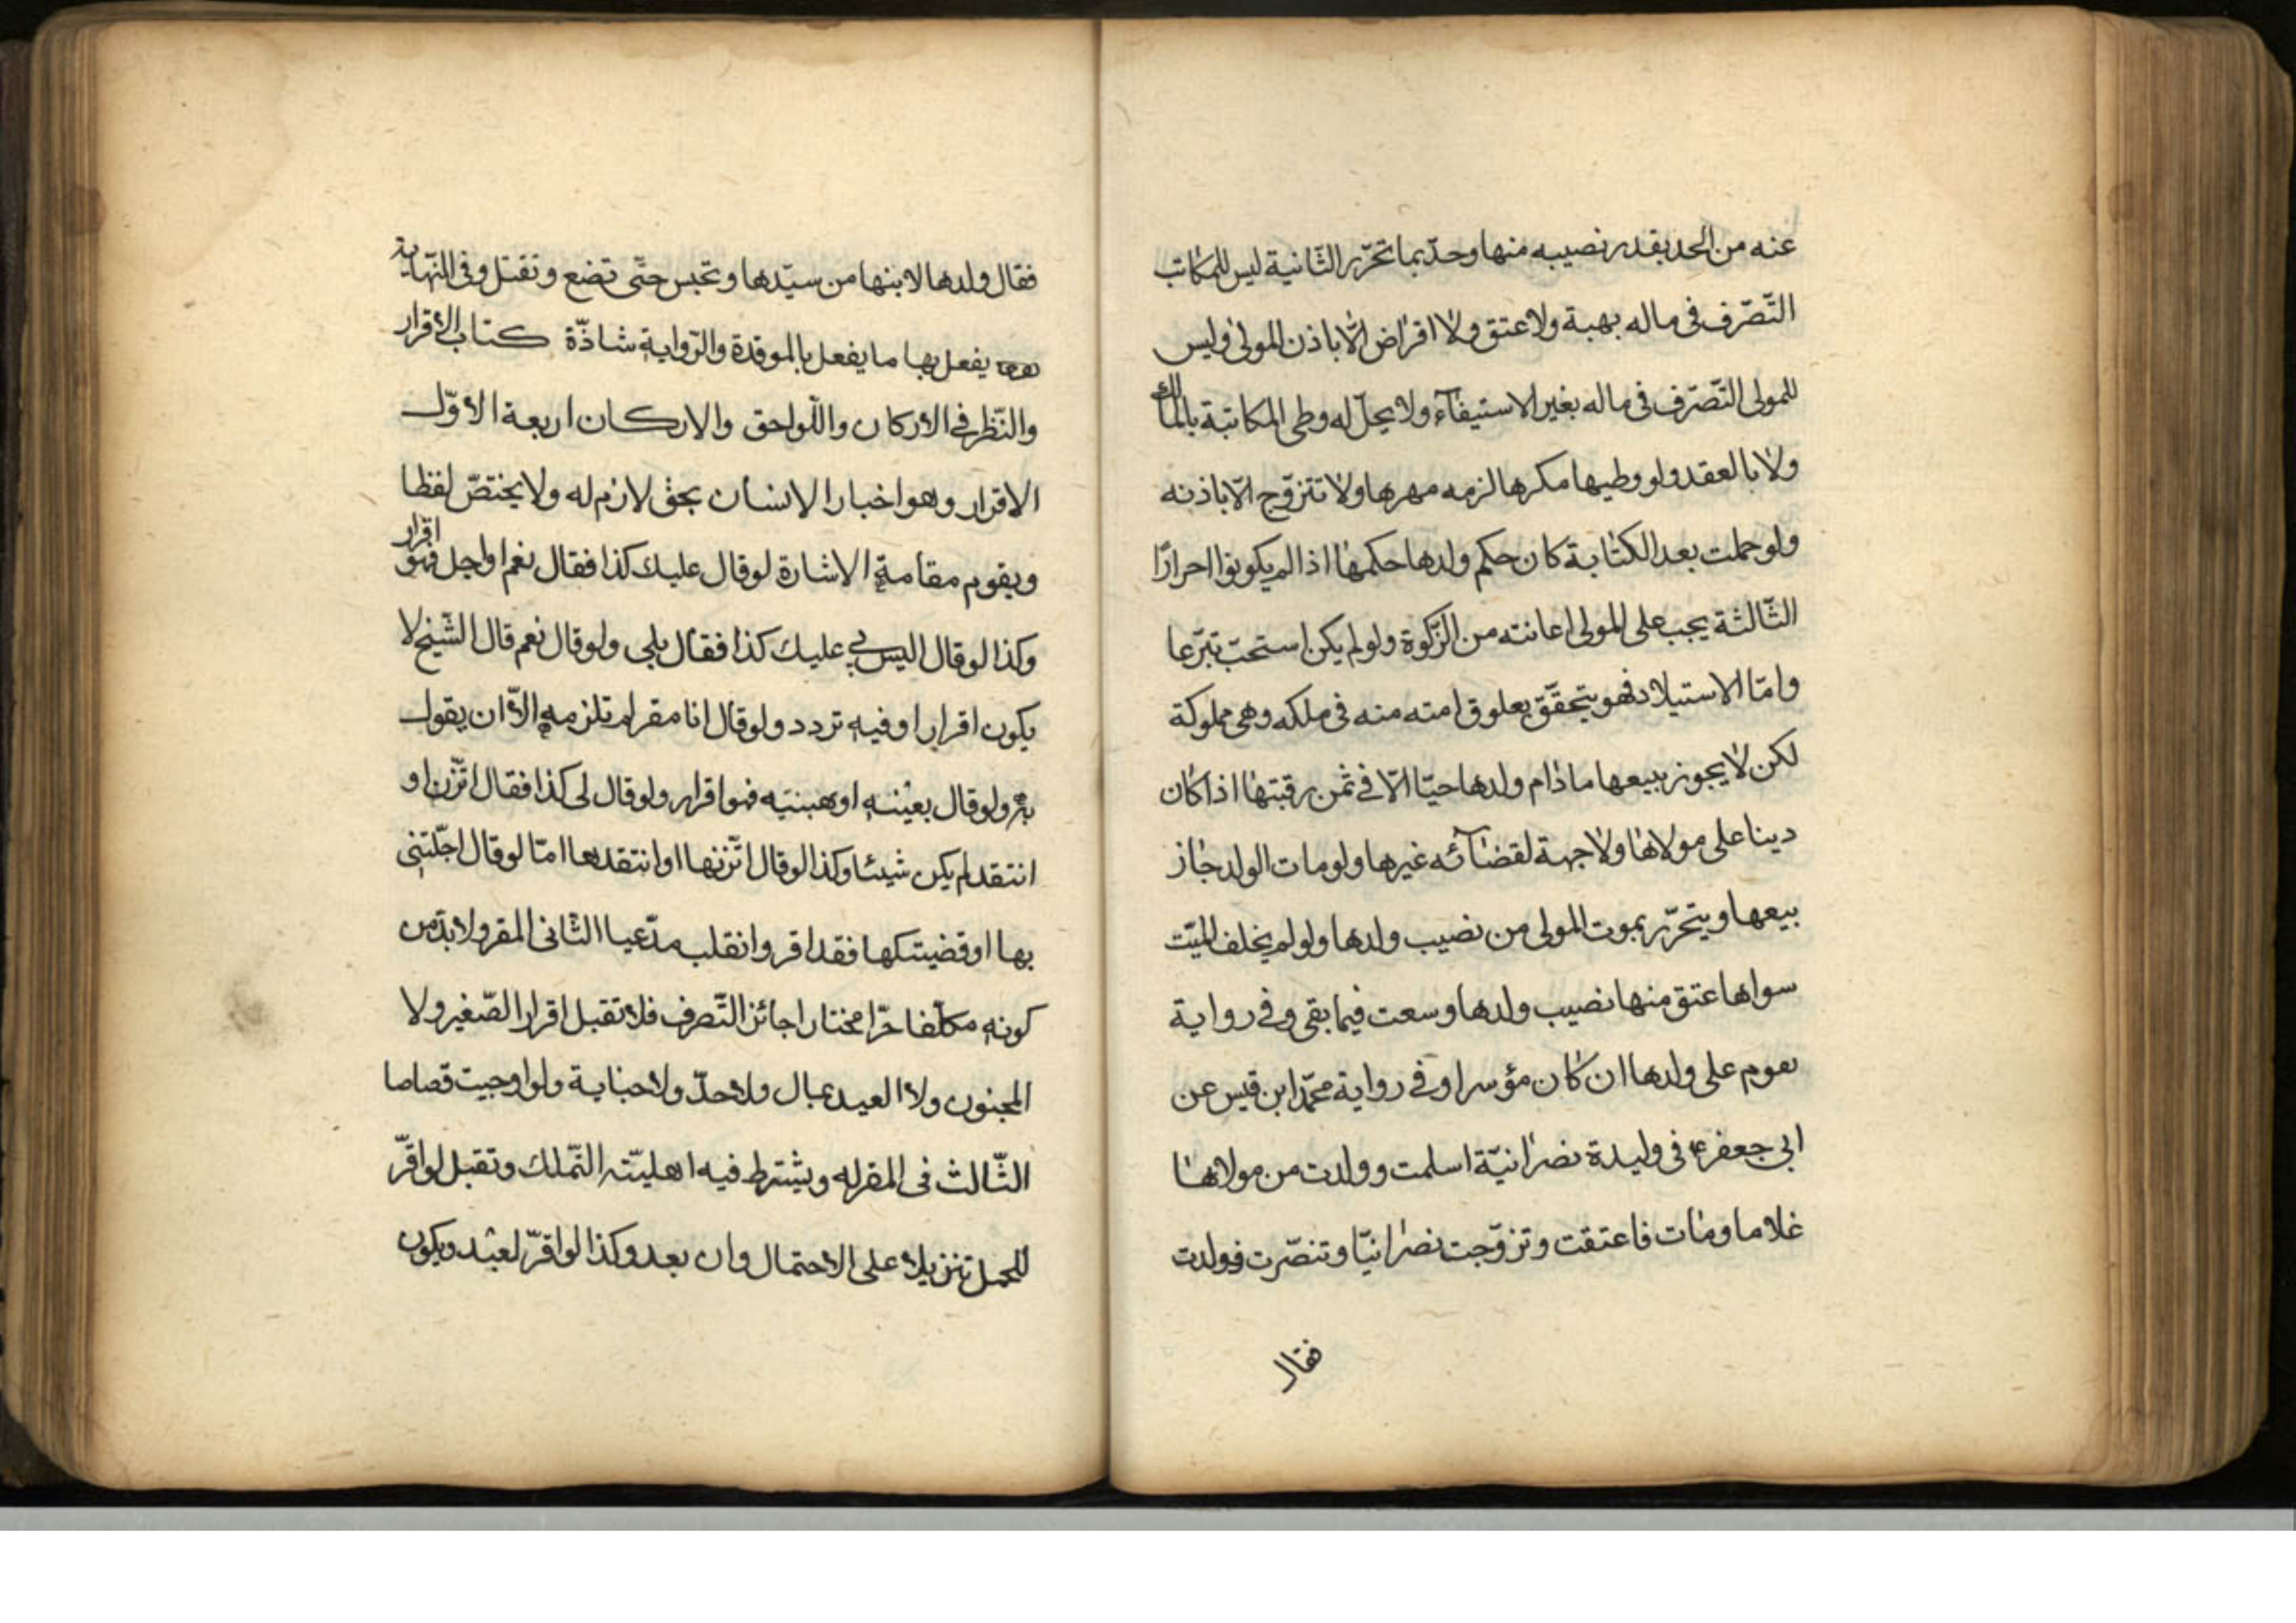 عنه من الحد بقدر نصيبه منها وحدّ بما تحرّر الثّانية ليس للمكاتب
التّصرّف فى ماله بهبة ولا عتق ولا اقراض الّا باذن المولى وليس
للمولى التّصرّف فى ماله بغير الاستيفآء ولا يحلّ له وطى المكاتبة بالملك
ولا بالعقد ولو وطيها مكرها لزمه مهرها ولا تتزوّج الّا باذنه
ولو حملت بعد الكتابة كان حكم ولدها حكمها اذا لم يكونوا احرارًا
الثّالثة يجب على المولى اعانته من الزّكوة ولو لم يكن استحبّ تبرّعا
وامّا الاستيلاد فهو يتحقّق بعلوق امته منه فى ملكه وهى مملوكة
لكن لا يجوز بيعها مادام ولدها حيّا الّا فى ثمن رقبتها اذا كان
دينا على مولاها ولا جهة لقضآئه غيرها ولو مات الولد جاز
بيعها ويتحرّر بموت المولى من نصيب ولدها ولو لم يخلف الميّت
سواها عتق منها نصيب ولدها وسعت فيما بقى وفى رواية
يقوم على ولدها ان كان مؤسرا وفى رواية محمّد ابن قيس عن
ابى جعفر ع فى وليدة نصرانيّة اسلمت وولدت من مولاها
غلاما ومات فاعتقت وتزوّجت نصرانيّا وتنصّرت فولدت
فقال
فقال ولدها لابنها من سيّدها وتحبس حتّى تضع وتقتل وفى النّهاية
يفعل بها ما يفعل بالموقدة والرّواية شاذّة كتاب الاقرار
والنّظر فى الاركان واللّواحق والاركان اربعة الاوّل
الاقرار وهو اخبار الانسان بحق لازم له ولا يختصّ لفظا
ويقوم مقامة الاشارة لو قال عليك كذا فقال نعم او اجل فهو اقرار
وكذا لو قال اليس لي عليك كذا فقال بلى ولو قال نعم قال الشّيخ لا
يكون اقرارا وفيه تردد ولو قال انا مقر لم تلزمه الّا ان يقول
به ولو قال بعينه او هبنيه فهو اقرار ولو قال لى كذا فقال اتّزن او
انتقد لم يكن شيئا وكذا لو قال اتّزنها او انتقدها امّا لو قال اجّلتنى
بها او قضيتكها فقد اقر وانقلب مدّعيا الثانى المقر ولا بدّ من
كونه مكلّفا حرّا مختارا جائز التّصرف فلا تقبل اقرار الصّغير ولا
المجنون ولا العبد بمال ولا حدّ ولا جناية ولو اوجبت قصاصا
الثّالث فى المقر له ويشترط فيه اهليّته التّملك وتقبل لو اقرّ
للحمل تنزيلا على الاحتمال وان بعد وكذا لو اقرّ لعبد ويكون